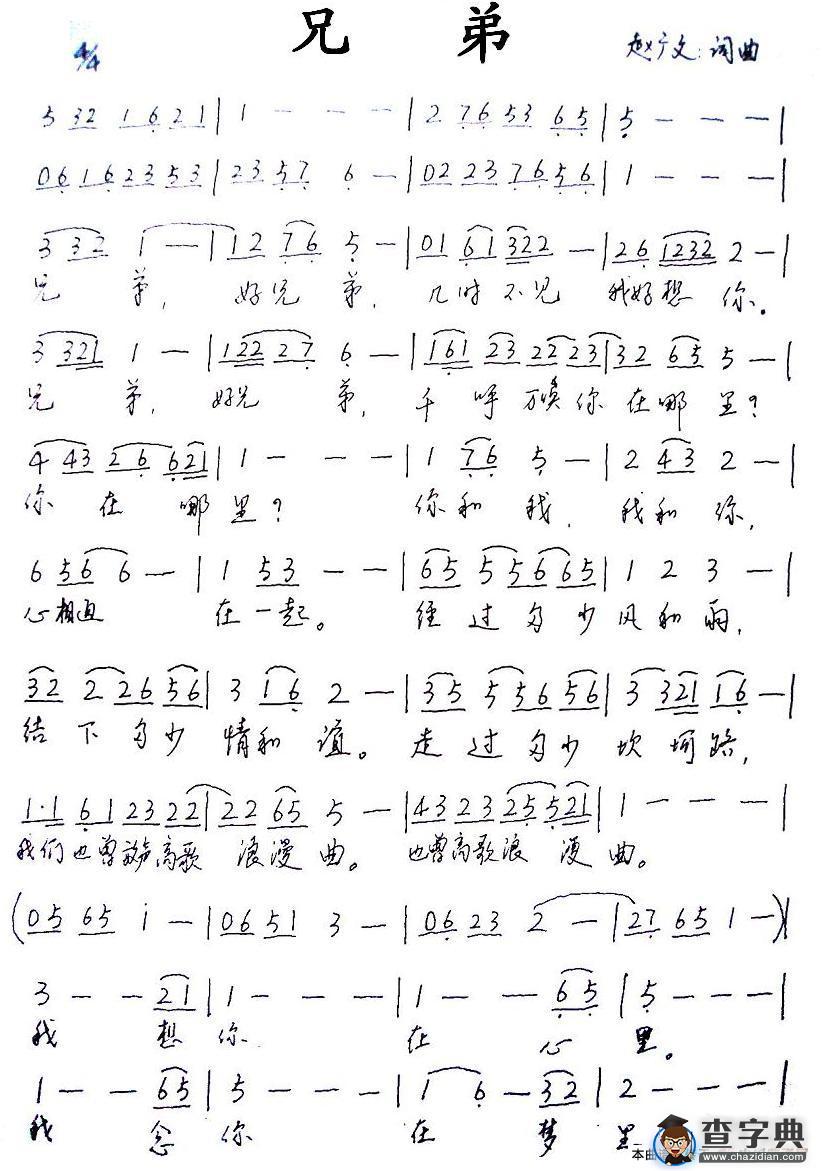 兄 弟
4/4
赵广文：词曲
5 32 16 21 | 1 - - - | 2 76 53 65 | 5 - - - |
06 16 23 53 | 23 57 6 - | 02 23 76 56 | 1 - - - |
3 32 1 - | 12 76 5 - | 01 61 322 - | 26 1232 2 - |
兄 弟， 好兄 弟， 几时不见 我好想 你。
3 321 1 - | 122 27 6 - | 161 23 22 23 | 32 65 5 - |
兄 弟， 好兄 弟， 千 呼 万唤 你 在哪 里？
4 43 26 621 | 1 - - - | 1 76 5 - | 2 43 2 - |
你 在 哪 里？ 你和 我， 我和 你，
6 56 6 - | 1 53 - - | 65 55 66 65 | 1 2 3 - |
心相连 在一起。 经 过 多少 风和雨，
32 2 26 56 | 3 16 2 - | 35 55 56 56 | 3 321 16 - |
结 下 多少 情和 谊。 走 过 多少 坎 坷路，
1·1 61 23 22 | 22 65 5 - | 43 23 25 521 | 1 - - - |
我们也曾放声高歌 浪漫 曲。 也曾高歌浪 漫 曲。
(05 65 i - | 06 51 3 - | 06 23 2 - | 27 65 1 - )|
3 - - 21 | 1 - - - | 1 - - 65 | 5 - - - |
我 想 你 在 心 里。
1 - - 65 | 5 - - - | 1 6 - 32 | 2 - - - |
我 念 你 在 梦 里
本曲
查字典
www.chazidian.com